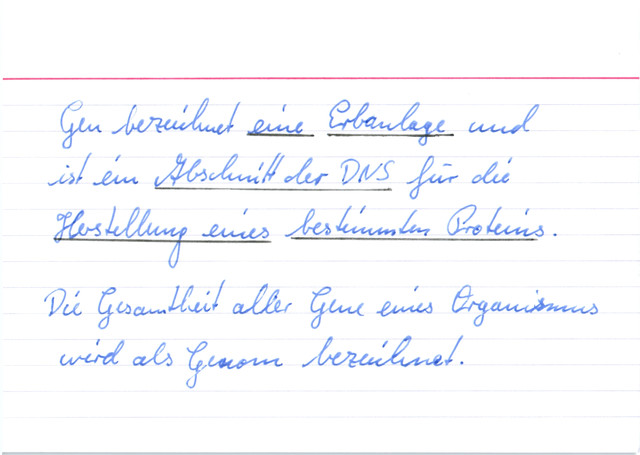 Gen bezeichnet eine Erbanlage und
ist ein Abschnitt der DNS für die
Herstellung eines bestimmten Proteins.
Die Gesamtheit aller Gene eines Organismus
wird als Genom bezeichnet.